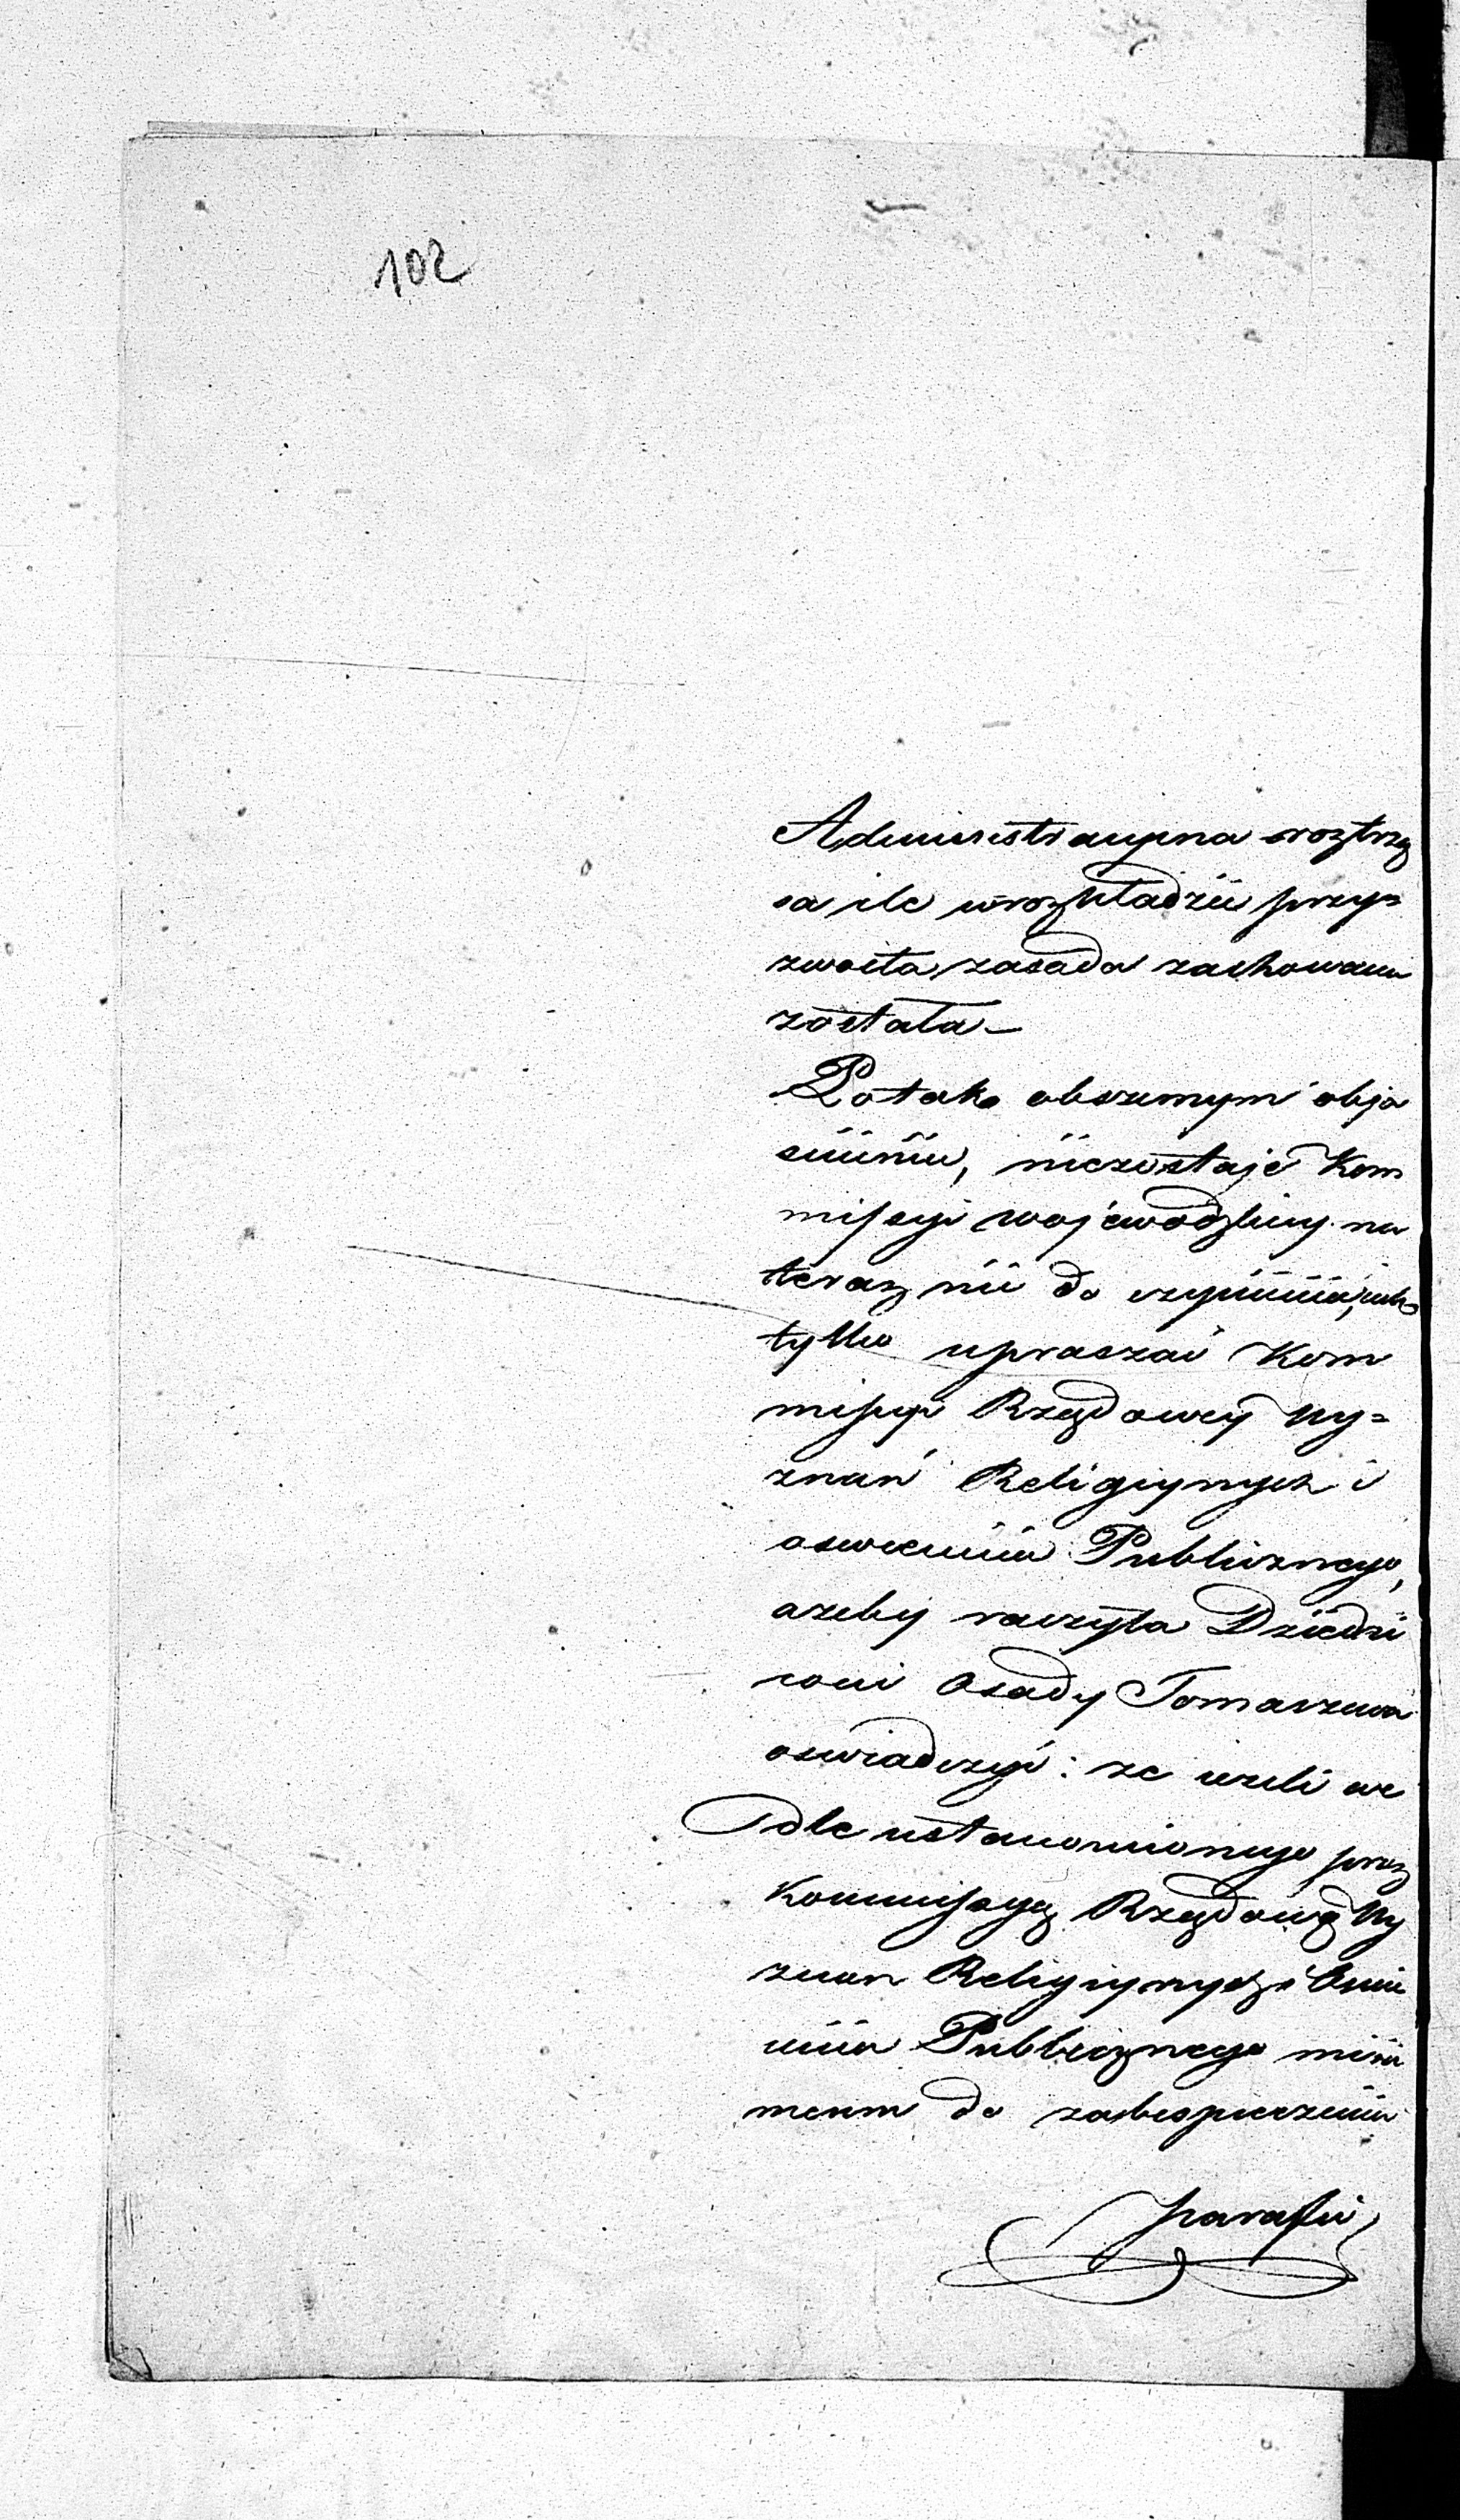 102
Administracyina roztrzą
sa ile w rozkładzie przy=
zwoita zasada zachowana
została –
Po tak obszernym obja
snieniu, niezostaje Kom
missyi wojewodzkiey na
teraz nic do czynienia, jak
tylko upraszać Kom
missyi Rządowey Wy=
znań Religiynych i
oswiecenia Publicznego,
ażeby raczyła Dziedzi
cowi Osady Tomaszewa
oswiadczyć: że ieżeli we
dle ustanowionego przez
Kommissyą Rządową Wy
znan Religiynych i Oswie
cenia Publicznego mini
mum do zabespieczenia
parafii